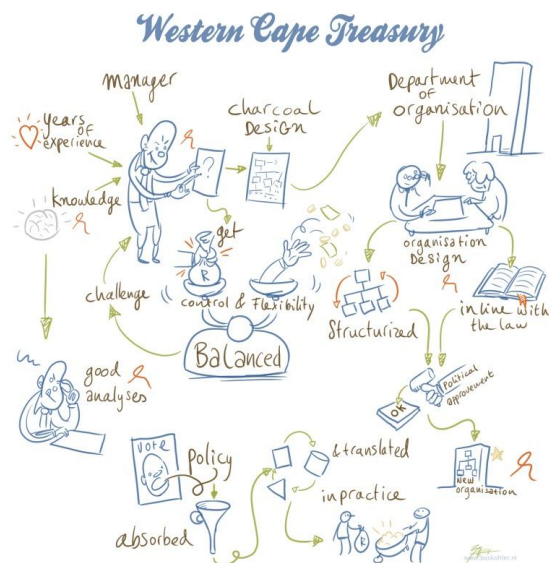 Western Cape Treasury
manager
Years
of
experience
knowledge
charcoal
DESIGN
?
Department
of
organisation
get
R
control & Flexibility
Balanced
challenge
organisation
Design
Structurized
in line with
the law
good
analyses
Political
approvement
OK
New
organisation
VOTE
Policy
absorbed
& translated
in practice
R